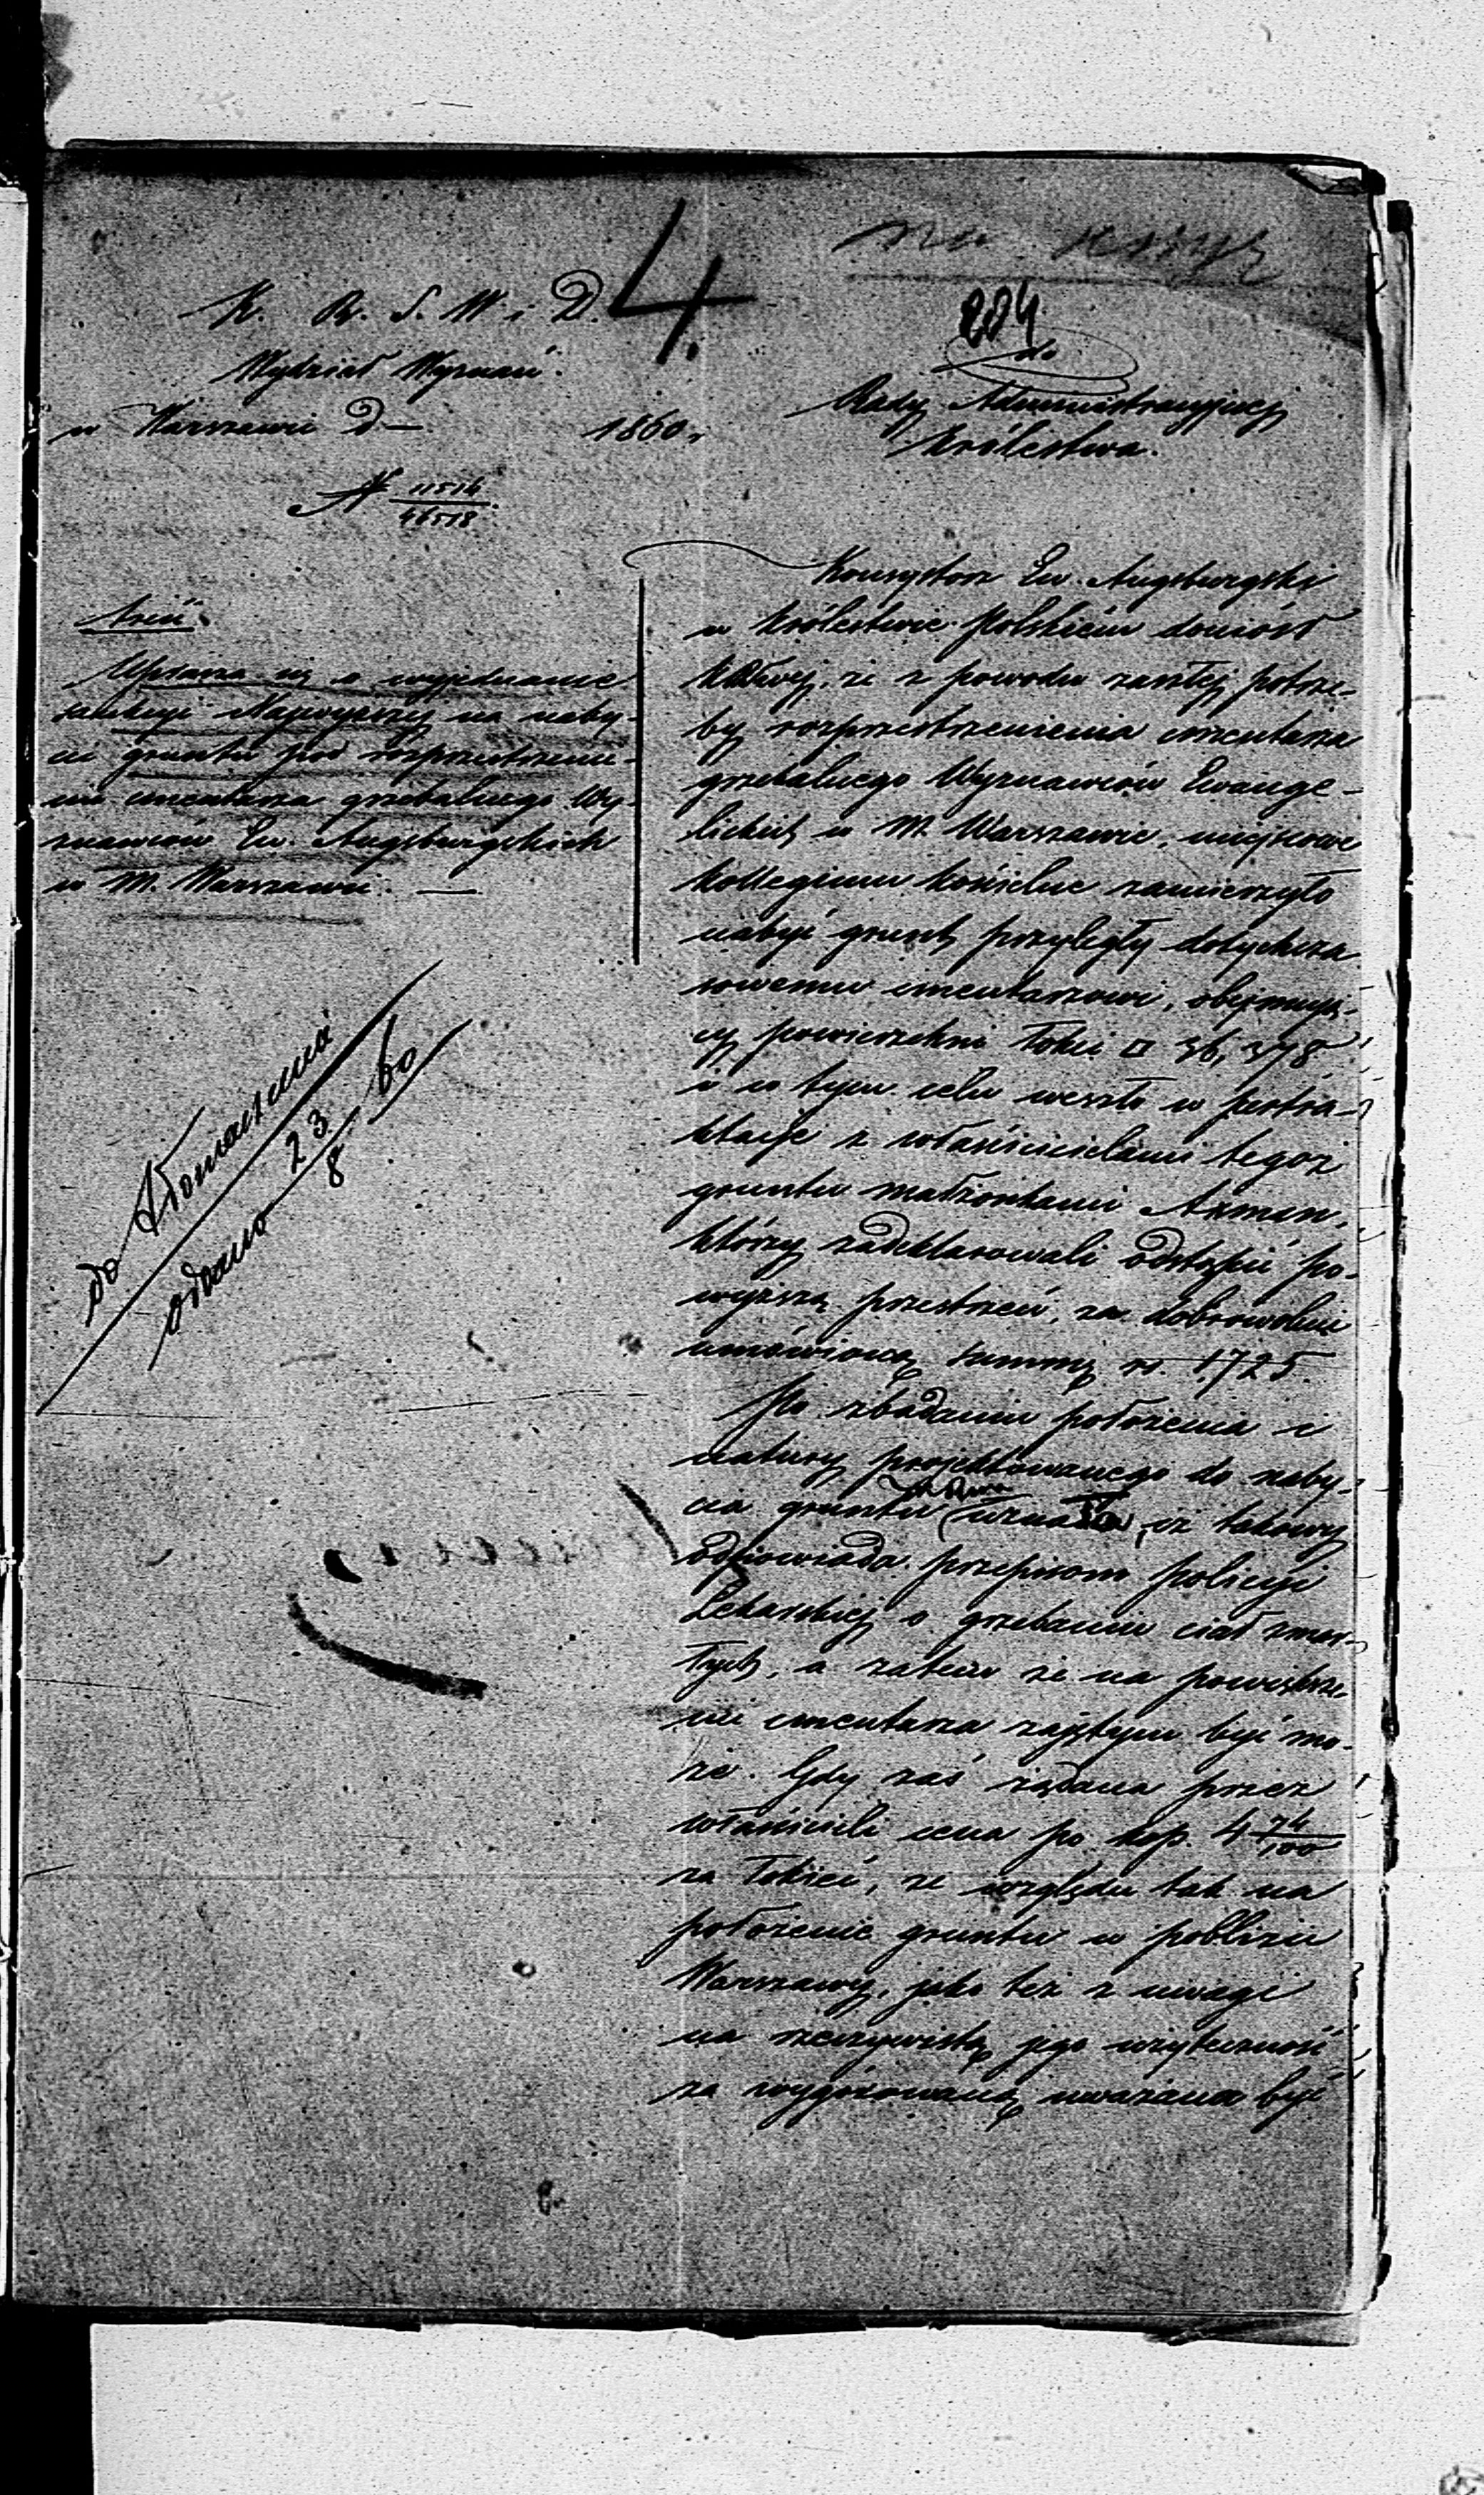 4.
204
K. R. S. W. i D.
Wydział Wyznań.
w Warszawie D — 1860 r.
N 11514/46518.
do
Rady Administracyjnej
Królestwa.
treść.
Uprasza się o wyjednanie
sankcyi Najwyższej na naby-
cie gruntu pod rozprzestrzenie-
nie cmentarza grzebalnego Wy-
znawców Ew. Augsburgskich
w M. Warszawie. —
do
oddano 23/8 60
Konsystorz Ew. Augsburgski
w Królestwie Polskiem doniósł
że z powodu zaszłej potrze-
by rozprzestrzenienia cmentarza
grzebalnego Wyznawców Ewange-
lickich w M. Warszawie, miejscowe
Kollegium Kościelne zamierzyło
nabyć grunt przyległy dotychcza
sowemu cmentarzowi, obejmują-
cy powierzchni łokci □ 36,378
i w tym celu weszło w pertra-
ktacje z właścicielami tegoż
gruntu małżonkami
którzy zadeklarowali odstąpić po-
wyższą przestrzeń, za dobrowolnie
umówioną summę rs. 1725.
Po zbadaniu położenia i
natury projektowanego do naby-
cia gruntu iż takowy
odpowiada przepisom policyi
Lekarskiej o grzebaniu ciał zmar-
łych, a zatem że na powiększe-
nie cmentarza zajętym być mo-
że. Gdy zaś żądana przez
właścicieli cena po kop. 4 74/100
za łokieć, ze względu tak na
położenie gruntu w pobliżu
Warszawy, jako też z uwagi
na rzeczywistą jego użyteczność
za wygórowaną uważana być